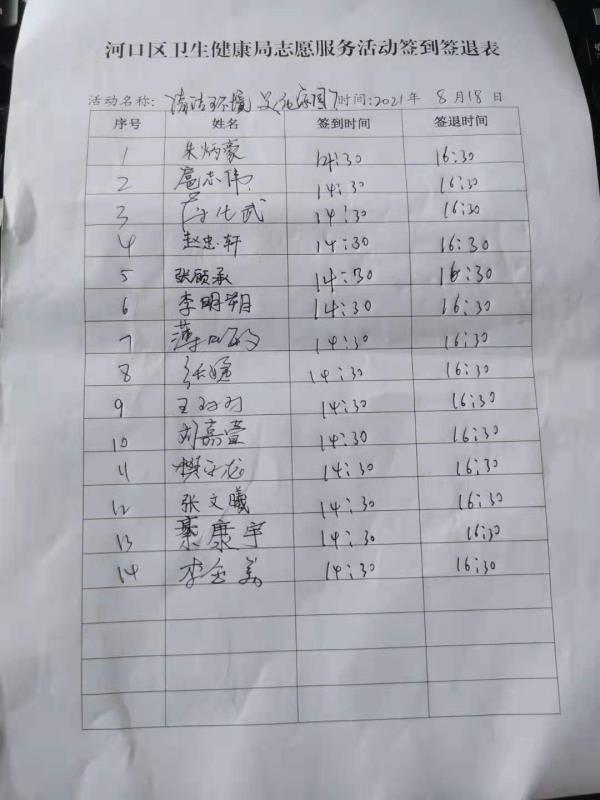 河口区卫生健康局志愿服务活动签到签退表
活动名称: 清洁环境 时间:2021年 8月18日
序号 姓名 签到时间 签退时间
1 朱炳豪 14:30 16:30
2 扈志伟 14:30 16:30
3 14:30 16:30
4 赵忠轩 14:30 16:30
5 张硕承 14:30 16:30
6 李明朔 14:30 16:30
7 14:30 16:30
8 14:30 16:30
9 14:30 16:30
10 刘嘉萱 14:30 16:30
11 14:30 16:30
12 张文曦 14:30 16:30
13 綦康宇 14:30 16:30
14 李金美 14:30 16:30